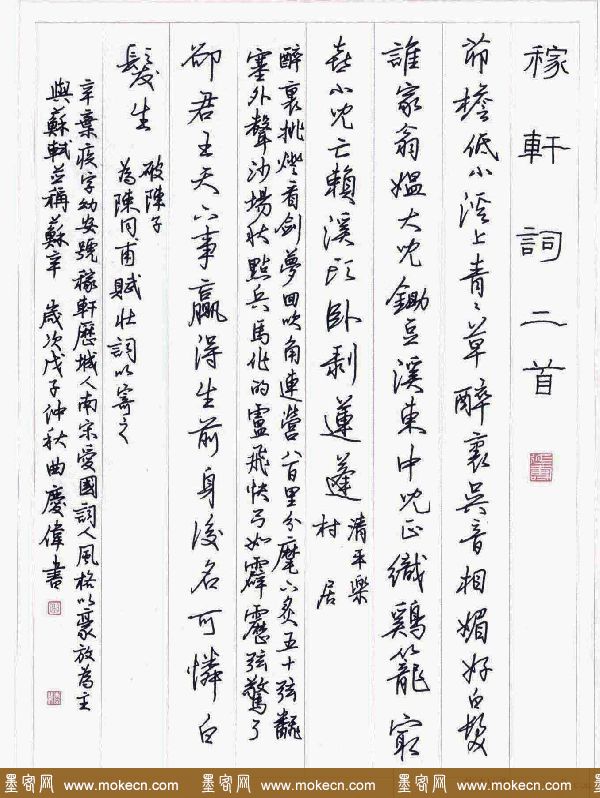 稼軒詞二首
茆檐低小溪上青青草醉裏吳音相媚好白髮
誰家翁媼大兒鋤豆溪東中兒正織鷄籠最
喜小兒亡賴溪頭卧剥蓮蓬
清平樂
村居
醉裏挑燈看劍夢回吹角連營八百里分麾下炙五十弦翻
塞外聲沙場秋點兵馬作的盧飛快弓如霹靂弦驚了
却君王天下事贏得生前身後名可憐白
髮生
破陳子
為陳同甫賦壯詞以寄之
辛棄疾字幼安號稼軒歷城人南宋愛國詞人風格以豪放為主
與蘇軾並稱蘇辛 歲次戊子仲秋曲慶偉書
墨客网 www.mokecn.com 墨客网 www.mokecn.com 墨客网 www.mokecn.com